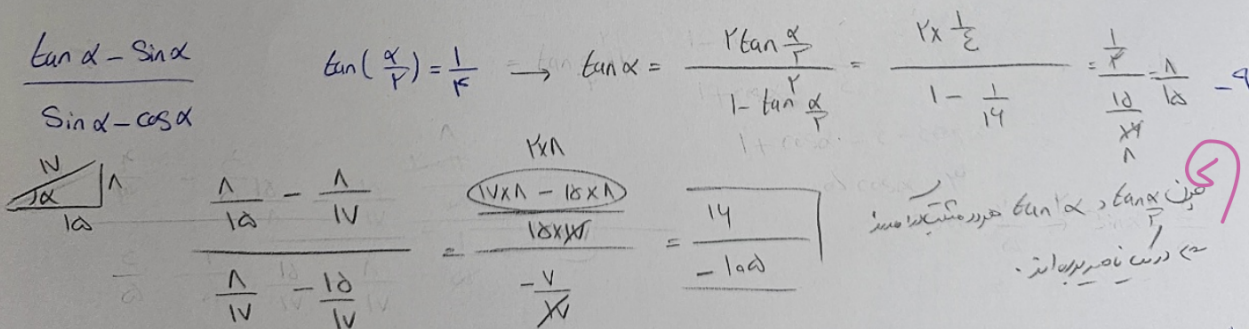 (tan α - Sin α) / (Sin α - cos α)    tan(α/۲) = ۱/۴ → tan α = (۲tan α/۲) / (۱ - tan² α/۲) = (۲×۱/۴) / (۱ - ۱/۱۶) = (۱/۲) / (۱۵/۱۶) = ۸/۱۵ - ۹
۱۷ ۸ α ۱۵    (۸/۱۵ - ۸/۱۷) / (۸/۱۷ - ۱۵/۱۷) = ((۱۷×۸ - ۱۵×۸) / (۱۵×۱۷)) / (-۷/۱۷) = ۱۶ / -۱۰۵
۲×۸
چون tan α/۲ و tan α هر دو مثبت
در یک ناحیه بوده‌اند.